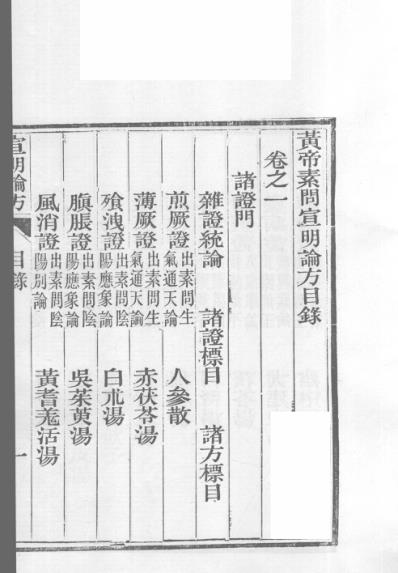 黃帝素問宣明論方目錄
卷之一
諸證門
雜證統論 諸證標目 諸方標目
煎厥證 出素問生氣通天論 人參散
薄厥證 出素問生氣通天論 赤茯苓湯
飧洩證 出素問陰陽應象論 白朮湯
䐜脹證 出素問陰陽應象論 吳茱萸湯
風消證 出素問陰陽別論 黃耆羗活湯
宣明論方 目錄 一